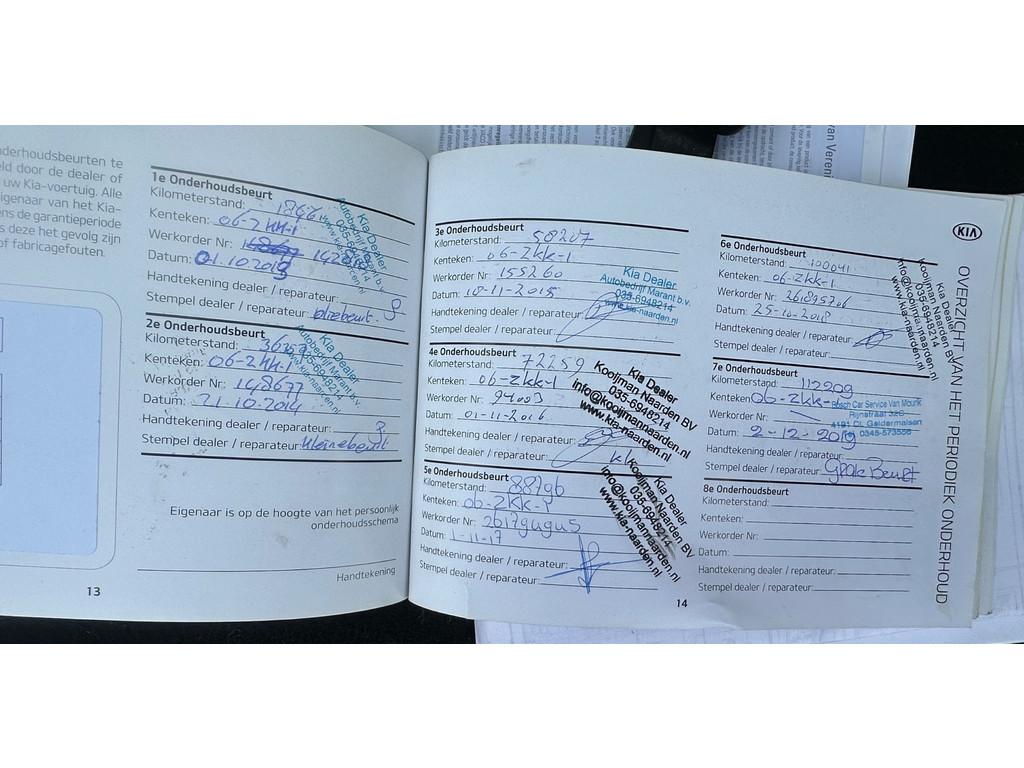 derhoudsbeurten te
ld door de dealer of
uw Kia-voertuig. Alle
igenaar van het Kia-
ns de garantieperiode
s deze het gevolg zijn
of fabricagefouten.
1e Onderhoudsbeurt
Kilometerstand:
Kenteken: 06-ZKK-1
Werkorder Nr:
Datum: 01.10 2013
Handtekening dealer / reparateur:
Stempel dealer / reparateur: oliebeurt
Kia Dealer
Autobedrijf Marant b.v.
035-6948214
www.kia-naarden.nl
2e Onderhoudsbeurt
Kilometerstand: 36357
Kenteken: 06-ZKK-1
Werkorder Nr: 148677
Datum: 21-10-2014
Handtekening dealer / reparateur:
Stempel dealer / reparateur: kleinebeurt
Kia Dealer
Autobedrijf Marant b.v.
035-6948214
www.kia-naarden.nl
Eigenaar is op de hoogte van het persoonlijk
onderhoudsschema
Handtekening
13
3e Onderhoudsbeurt
Kilometerstand: 58207
Kenteken: 06-ZKK-1
Werkorder Nr: 155260
Datum: 10-11-2015
Handtekening dealer / reparateur:
Stempel dealer / reparateur:
Kia Dealer
Autobedrijf Marant b.v.
035-6948214
www.kia-naarden.nl
4e Onderhoudsbeurt
Kilometerstand: 72259
Kenteken: 06-ZKK-1
Werkorder Nr: 94003
Datum: 01-11-2016
Handtekening dealer / reparateur:
Stempel dealer / reparateur:
Kia Dealer
Kooijman Naarden BV
035-6948214
info@kooijmannaarden.nl
www.kia-naarden.nl
5e Onderhoudsbeurt
Kilometerstand: 88796
Kenteken: 06-ZKK-1
Werkorder Nr:
Datum: 1-11-17
Handtekening dealer / reparateur:
Stempel dealer / reparateur:
Kia Dealer
Kooijman Naarden BV
035-6948214
info@kooijmannaarden.nl
www.kia-naarden.nl
14
6e Onderhoudsbeurt
Kilometerstand: 100041
Kenteken: 06-ZKK-1
Werkorder Nr:
Datum: 25-10-2018
Handtekening dealer / reparateur:
Stempel dealer / reparateur:
Kia Dealer
Kooijman Naarden BV
035-6948214
info@kooijmannaarden.nl
www.kia-naarden.nl
7e Onderhoudsbeurt
Kilometerstand: 112209
Kenteken: 06-ZKK-
Werkorder Nr:
Datum: 2-12-2019
Handtekening dealer / reparateur:
Stempel dealer / reparateur: Grote Beurt
Bosch Car Service Van Mourik
Rijnstraat 32C
4191 CL Geldermalsen
0345-573556
8e Onderhoudsbeurt
Kilometerstand:
Kenteken:
Werkorder Nr:
Datum:
Handtekening dealer / reparateur:
Stempel dealer / reparateur:
KIA
OVERZICHT VAN HET PERIODIEK ONDERHOUD